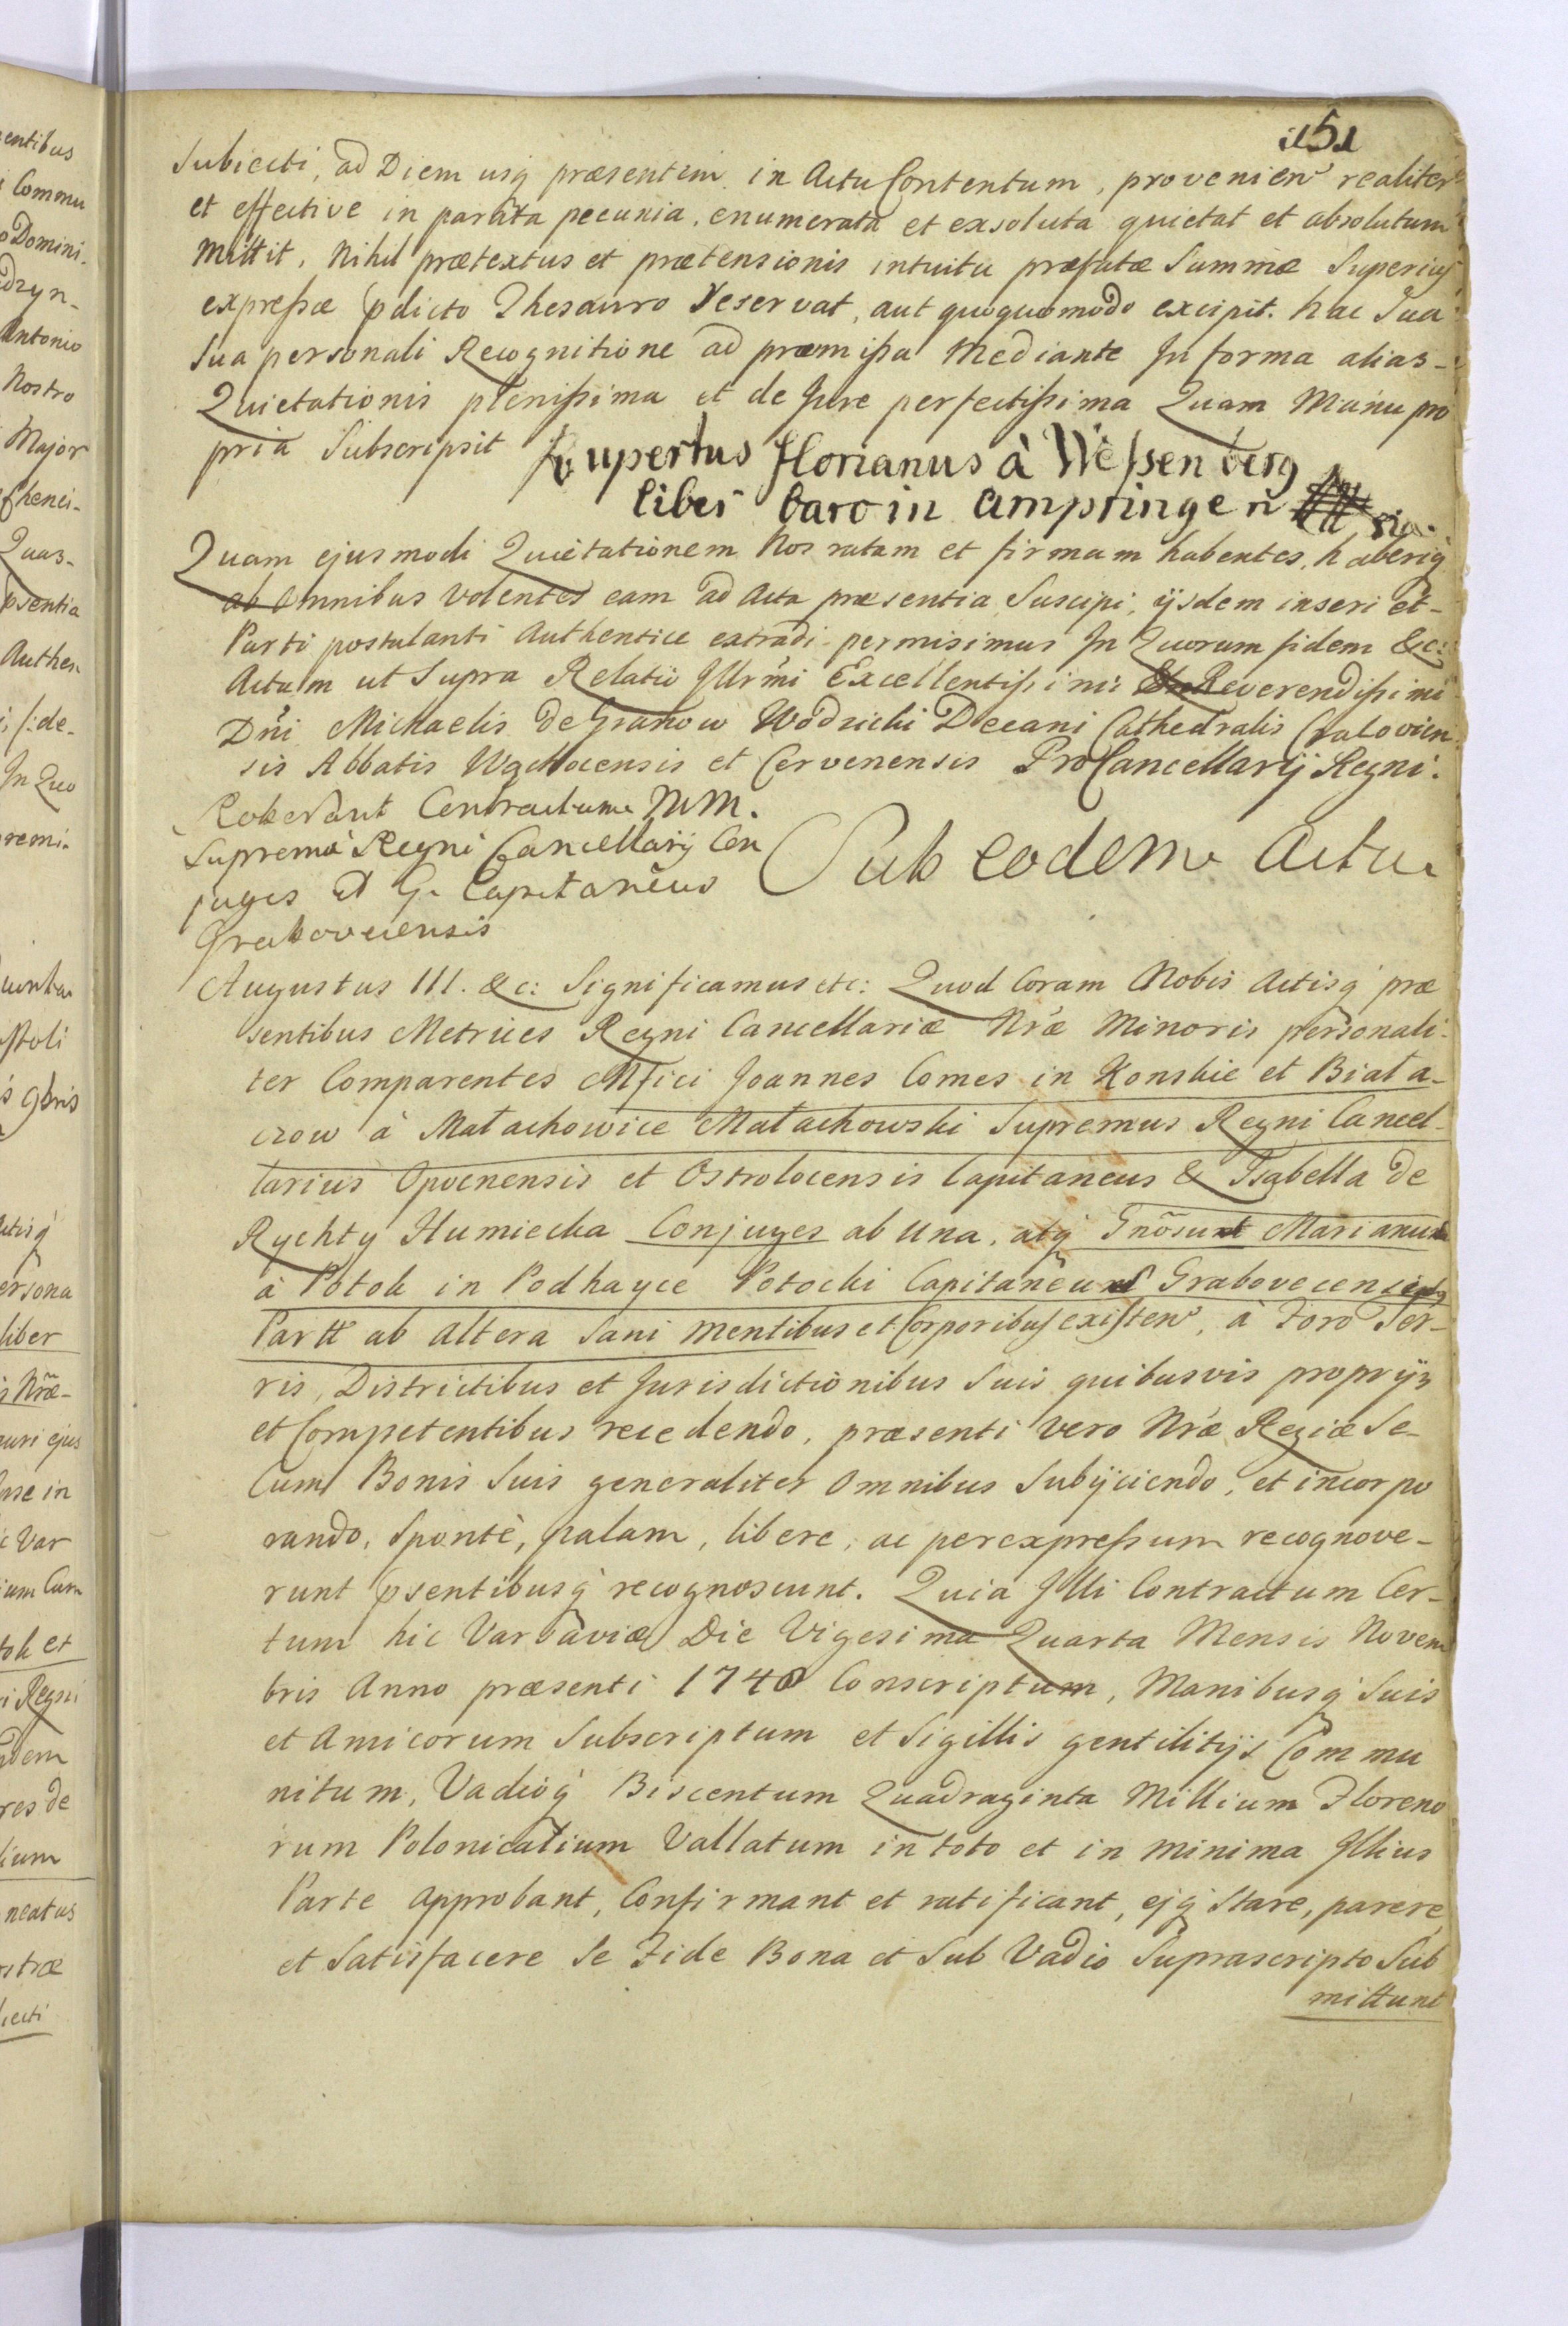 151
Subiecti, ad Diem usq præsentem in Actu Contentum, provenien realiter
et effective in parata pecunia, enumerata et exsoluta quietat et absolutum
Mittit, Nihil prætextus et prætensionis intuitu præfatæ Summæ Superius
expressæ pdicto Thesauro reservat, aut quoquomodo excipit. hac Sua
Sua personali Recognitione ad præmissa Mediante In forma alias-
Quietationis plenissima et de Jure perfectissima Quam Manu pro
pria Subscripsit Rupertus Florianus à Wessenberg
liber baro in Ampringen
Quam ejusmodi Quietationem Nos ratam et firmam habentes, haberiq
ab Omnibus Volentes eam ad Acta præsentia Suscipi, ijsdem inseri et-
Parti postulanti Authentice extradi permisimus In Quorum fidem &c:
Actum ut Supra Relatio Illrmi Excellentissimi Reverendissimi
Dni Michaelis de Granow Wodzicki Decani Cathedralis Cracovien
sis Abbatis Wąchocensis et Cervenensis ProCancellarij Regni.
Roborant Contractum MM.
Supremi Regni Cancellarij Con
juges et G. Capitaneus
Grabovecensis
Sub eodem Actu
Augustus III. &c: Significamus etc: Quod Coram Nobis Actisq præ
sentibus Metrices Regni Cancellariæ Nræ Minoris personali-
ter Comparentes Mfici Joannes Comes in Konskie et Biała-
czow à Małachowice Małachowski Supremus Regni Cancel-
larius Opocnensis et Ostrolocensis Capitaneus & Isabella de
Rychty Humiecka Conjuges ab Una, atq Gnosum Marianum
à Potok in Podhayce Potocki Capitaneum Grabovecensem
Partt ab Altera Sani Mentibus et Corporibus existen, à Foro Ter-
ris, Districtibus et Jurisdictionibus Suis quibusvis proprijs
et Competentibus recedendo, præsenti vero Nræ Regiæ Se-
Cum Bonis Suis generaliter Omnibus Subijciendo, et incorpo
rando, Sponte, palam, libere, ac per expressum recognove-
runt psentibusq recognoscunt. Quia Illi Contractum Cer-
tum hic Varsaviæ Die Vigesima Quarta Mensis Novem
bris Anno præsenti 1748 Conscriptum, Manibusq Suis
et Amicorum Subscriptum et Sigillis gentilitijs Commu
nitum, Vadioq Biscentum Quadraginta Millium Floreno
rum Polonicalium Vallatum in toto et in minima Illius
Parte Approbant, Confirmant et ratificant, ejq Stare, parere,
et Satisfacere Se Fide Bona et Sub Vadio Suprascripto Sub
mittunt